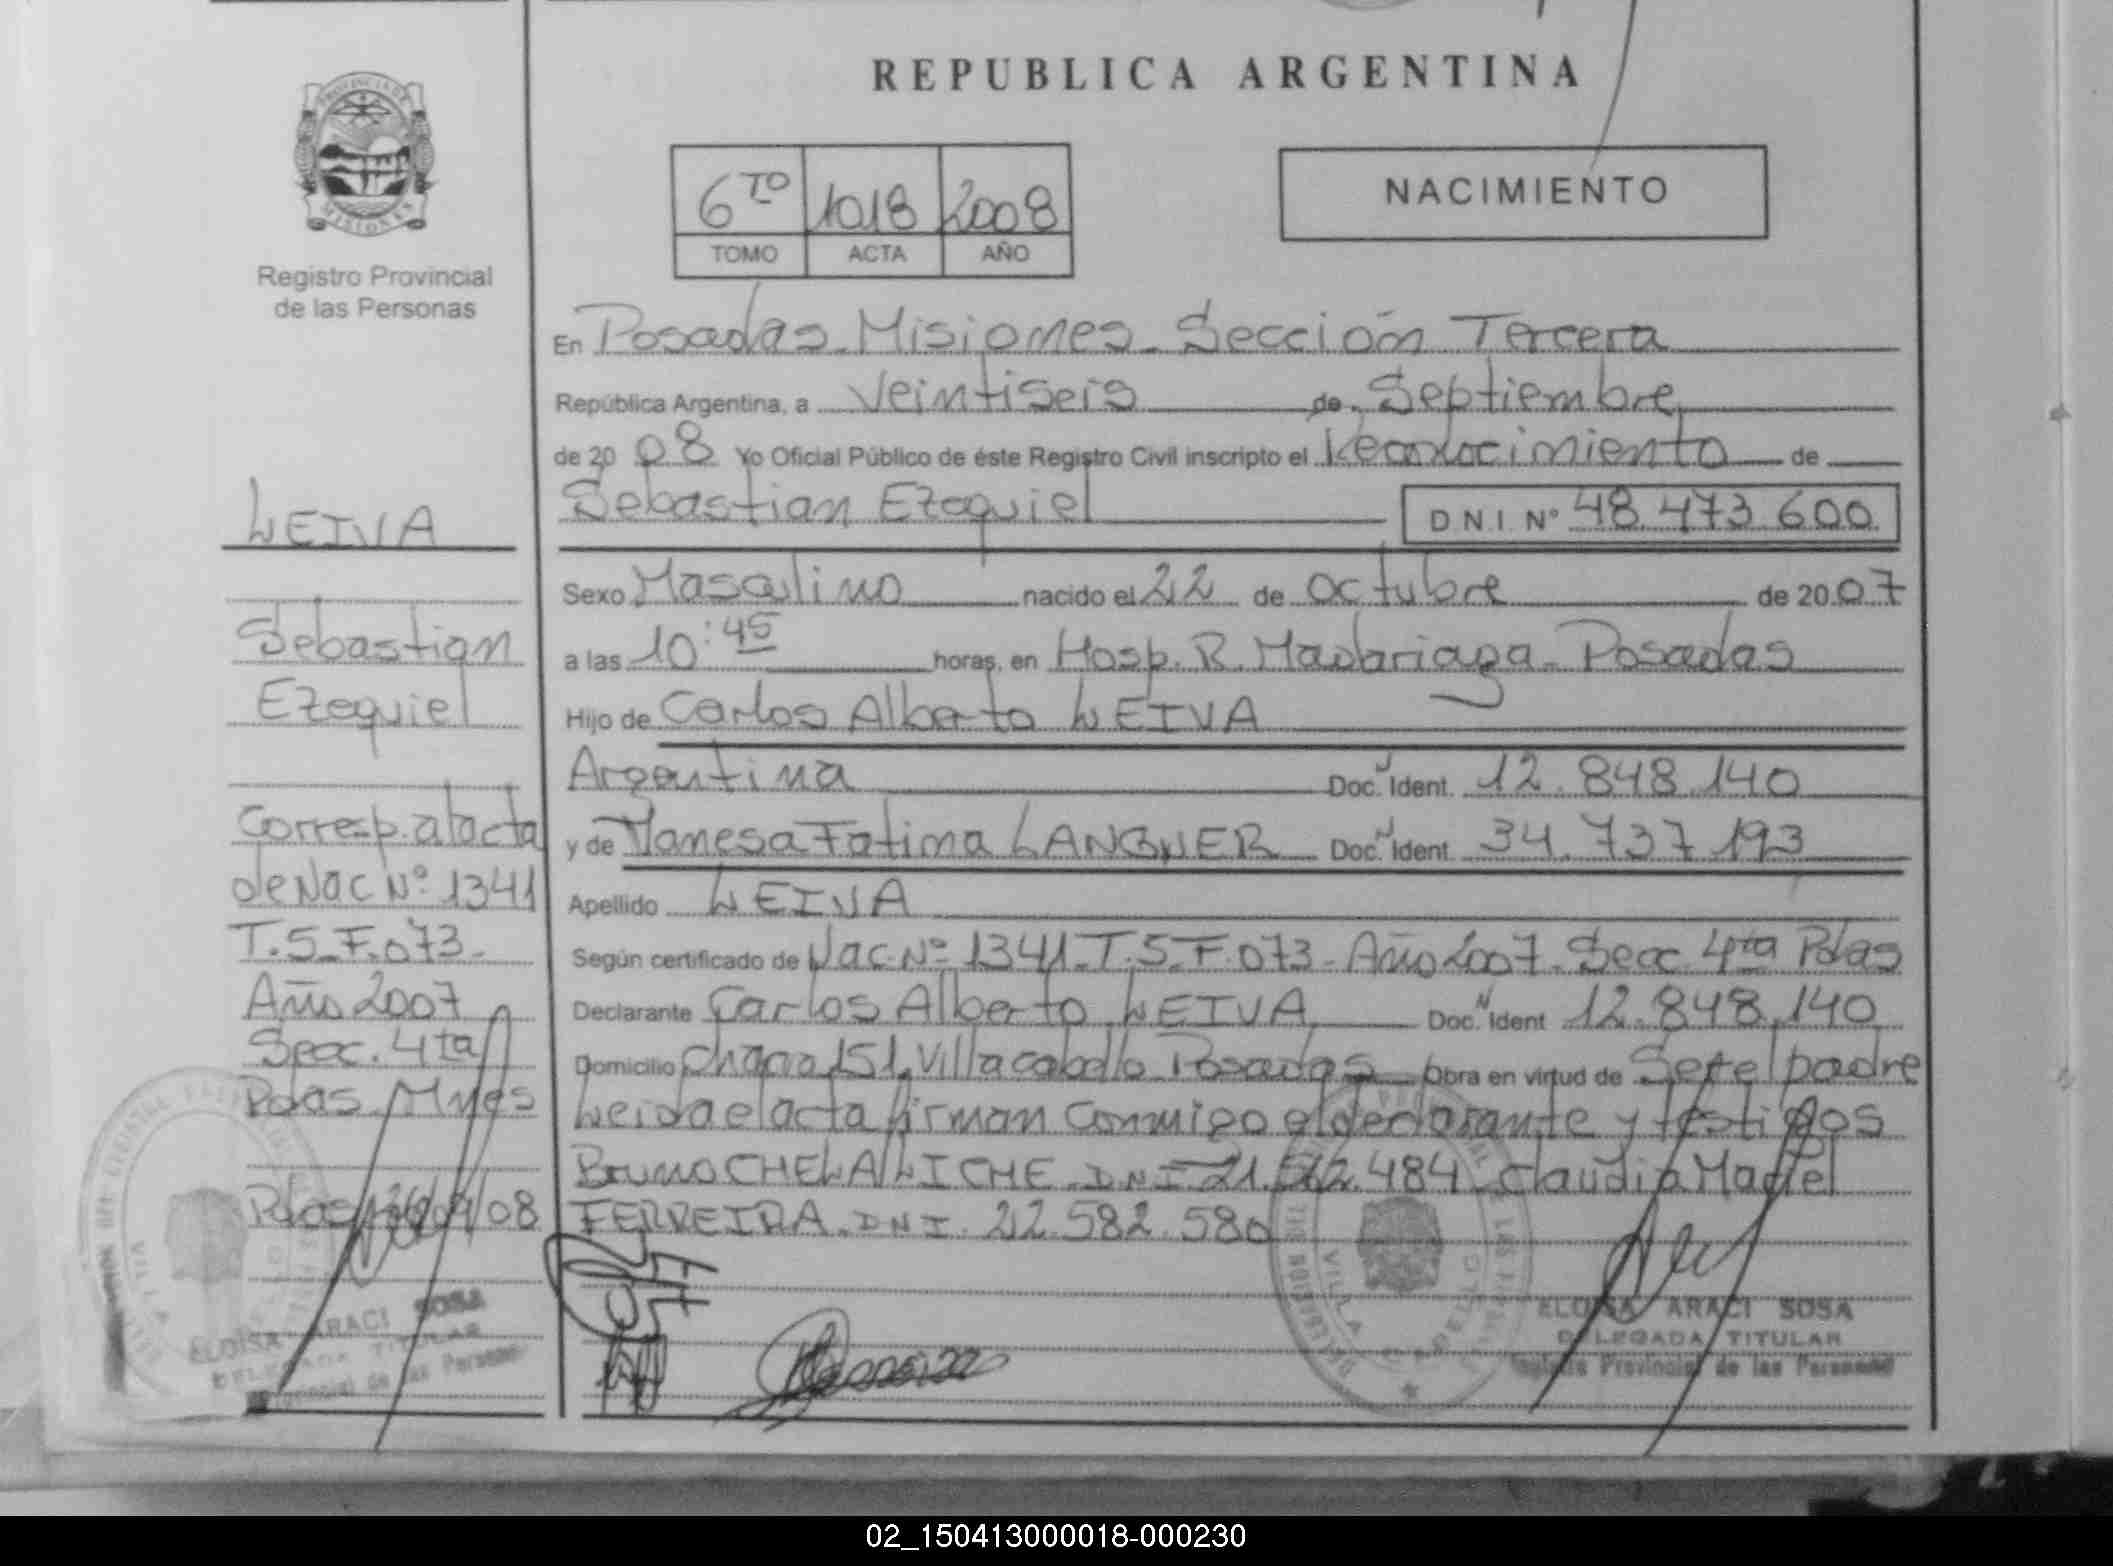 REPUBLICA ARGENTINA
PROVINCIA DE
MISIONES
Registro Provincial
de las Personas
6TO 1018 2008
TOMO ACTA AÑO
NACIMIENTO
En Posadas - Misiones - Sección Tercera
República Argentina, a Veintiseis de Septiembre
de 20 08 Yo Oficial Público de éste Registro Civil inscripto el Reconocimiento de
Sebastian Ezequiel D N I. Nº 48.473.600
Sexo Masculino nacido el 22 de Octubre de 20 07
a las 10:45 horas, en Hosp. R. Madariaga - Posadas
Hijo de Carlos Alberto LEIVA
Argentina Doc. N Ident. 12.848.140
y de Vanesa Fatima LANGNER Doc. N Ident. 34.737.193
Apellido LEIVA
Según certificado de Nac. Nº 1341 - T. 5 - F. 073 - Año 2007 - Secc. 4ta Pdas
Declarante Carlos Alberto LEIVA Doc. N Ident 12.848.140
Domicilio Chacra 151. Villa cabello Posadas Obra en virtud de Ser el padre
Leida el acta firman conmigo el declarante y testigos
Bruno DNI 21. .484 Claudia Mariel
FERREIRA. DNI. 22.582.580
LEIVA
Sebastian
Ezequiel
Corresp. al acta
de Nac Nº 1341
T. 5 - F. 073 -
Año 2007
Secc. 4ta
Pdas. Mnes
Pdas, 26/09/08
ELOISA ARACI SOSA
DELEGADA TITULAR
Provincial de las Personas
VILLA CABELLO
ELOISA ARACI SOSA
DELEGADA TITULAR
Registro Provincial de las Personas
02_150413000018-000230